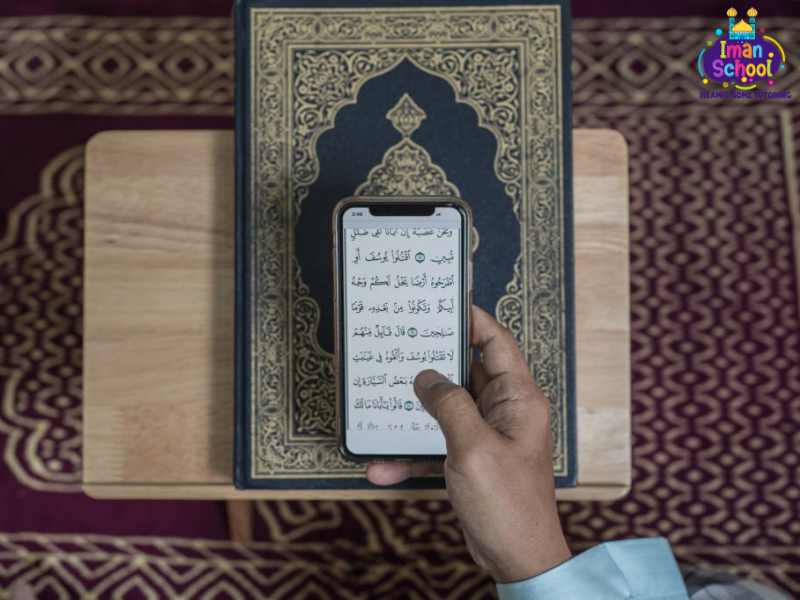 Iman
School
ISLAMIC HOME TUTORING
وَنَحْنُ عُصْبَةٌ إِنَّ أَبَانَا لَفِى ضَلَٰلٍ
مُّبِينٍ ٱقْتُلُوا۟ يُوسُفَ أَوِ
ٱطْرَحُوهُ أَرْضًا يَخْلُ لَكُمْ وَجْهُ
أَبِيكُمْ وَتَكُونُوا۟ مِنۢ بَعْدِهِۦ قَوْمًا
صَٰلِحِينَ قَالَ قَآئِلٌ مِّنْهُمْ
لَا تَقْتُلُوا۟ يُوسُفَ وَأَلْقُوهُ فِى غَيَٰبَتِ
بَعْضُ ٱلسَّيَّارَةِ إِن
قَالُوا۟ يَٰٓأَبَانَا مَا لَكَ